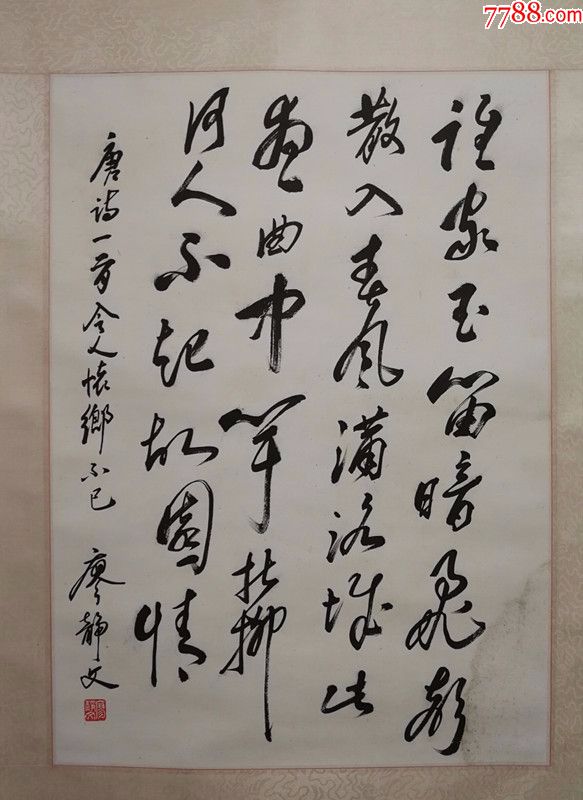 7788.com
誰家玉笛暗飛聲
散入春風滿洛城此
夜曲中聞折柳
何人不起故園情
唐詩一首令人懷鄉不已 廖靜文